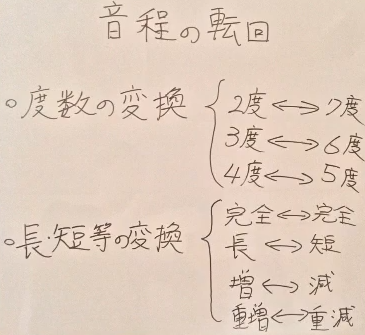 音程の転回
○度数の変換 2度↔7度
3度↔6度
4度↔5度
○長・短等の変換 完全↔完全
長↔短
増↔減
重増↔重減